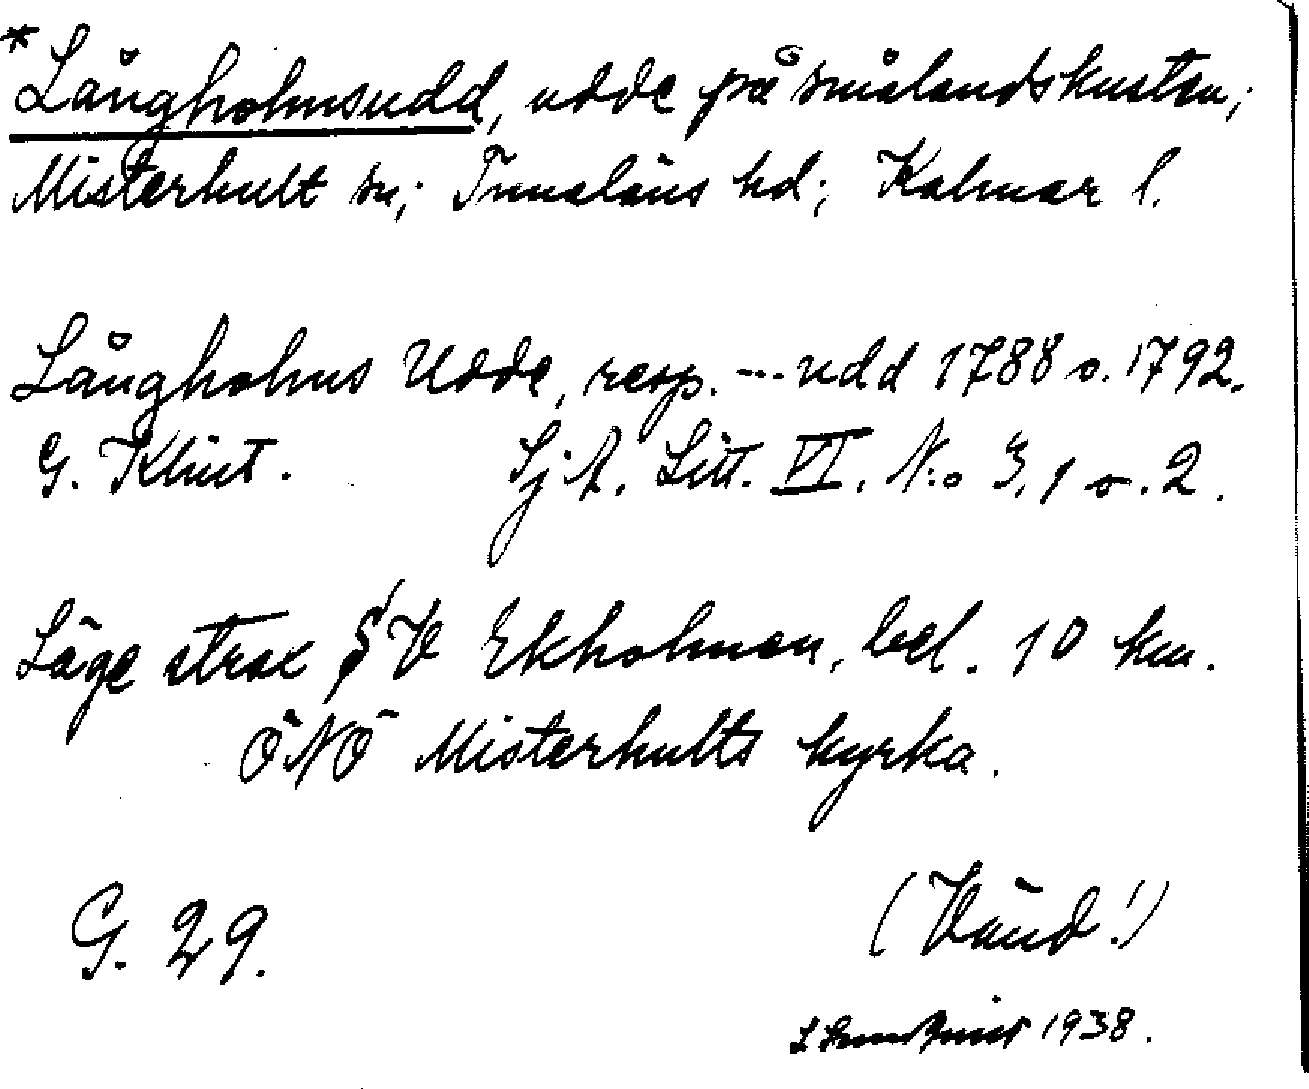 *Långholmsudd, udde på smålandskusten;
Misterhult sn; Tunaläns hd; Kalmar l.
Långholms Udde, resp. --- udd 1788 o. 1792.
G. Klint. Sj. A. Litt. VI. N:o 3, 1 o. 2.
Läge strax V Ekholmen, bel. 10 km.
ÖNÖ Misterhults kyrka.
G. 29.
(Vänd!)
1938.